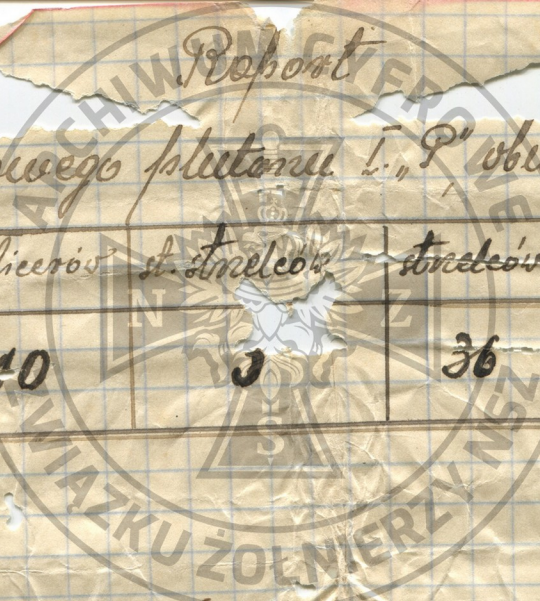 Raport
owego plutonu I. „P” obw
ficerów st. strzelców strzelców
40 36
ARCHIWUM CYFROWE
ZWIĄZKU ŻOŁNIERZY NSZ
N Z
S